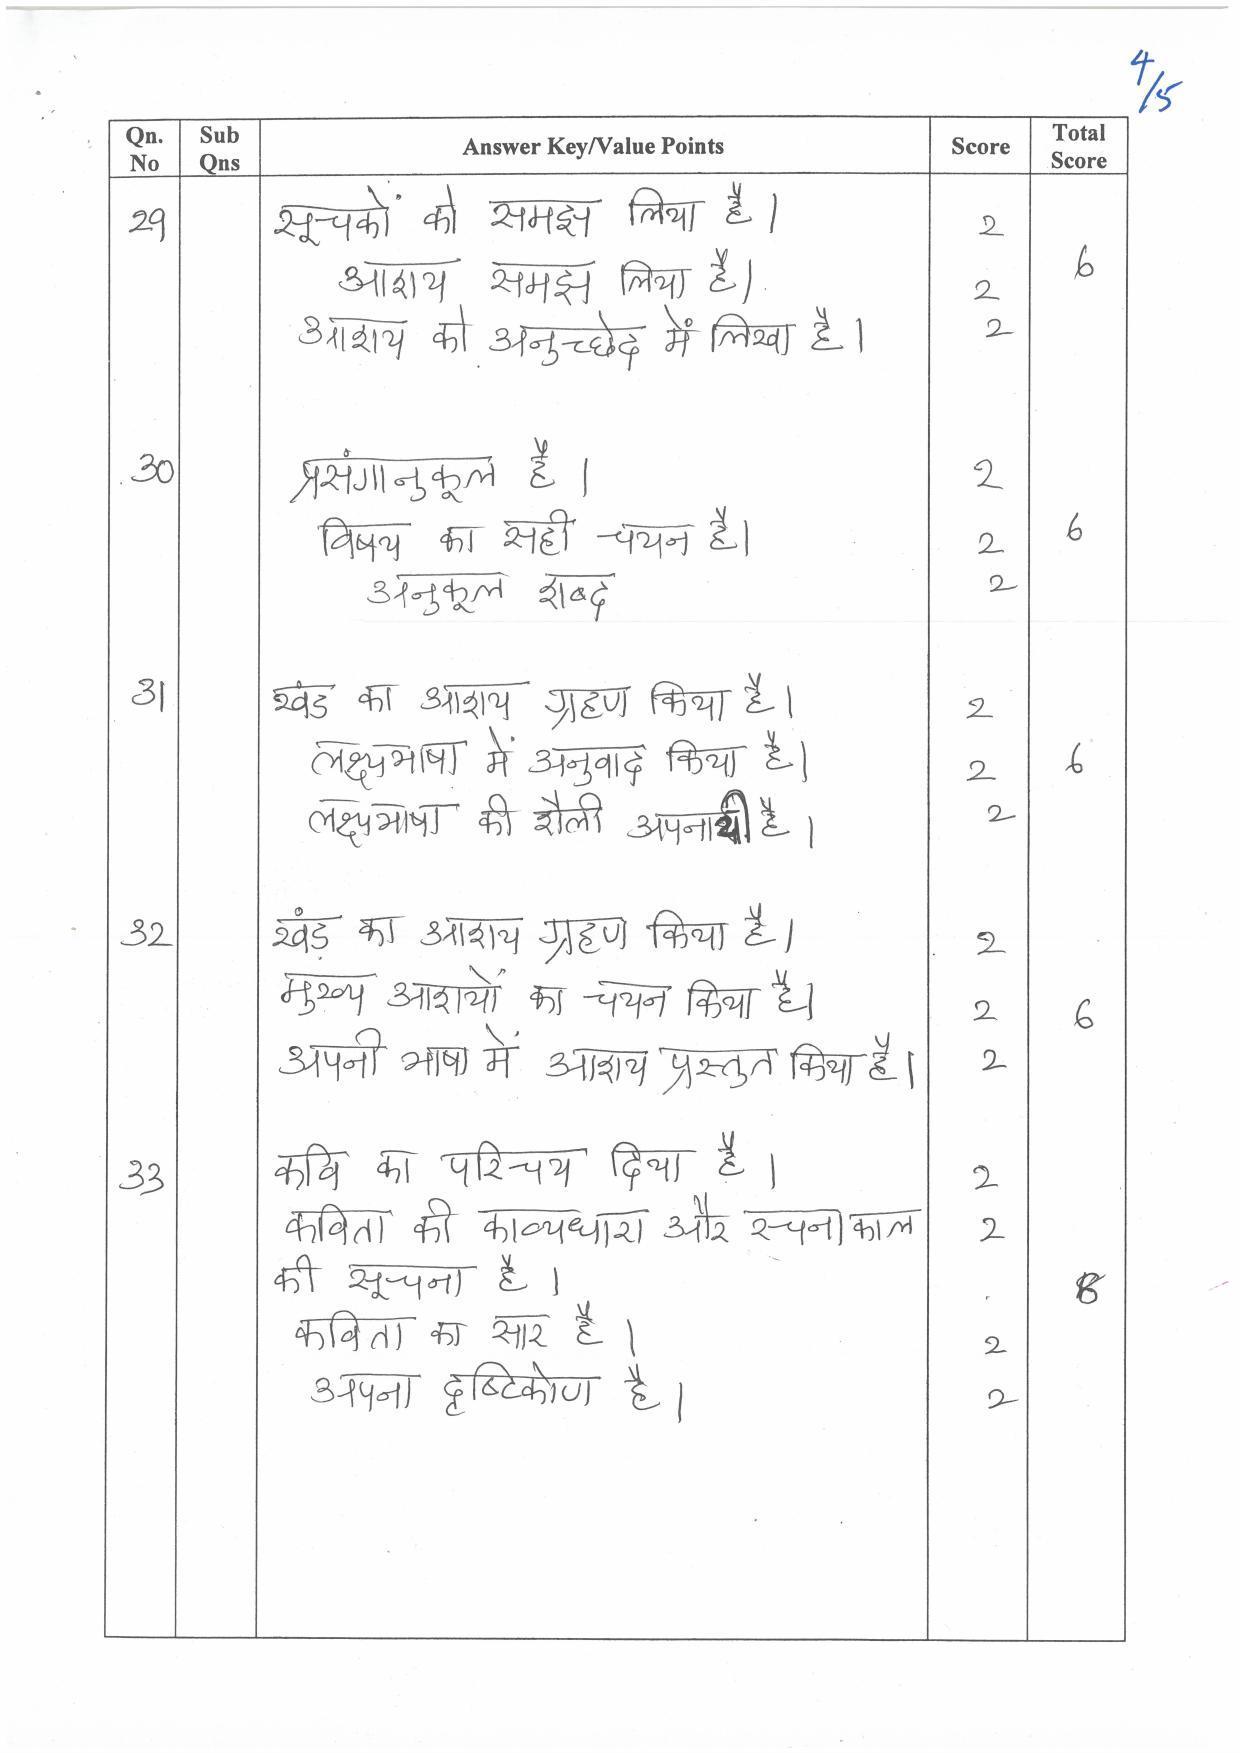 4/5
Qn. No Sub Qns Answer Key/Value Points Score Total Score
29 सूचकों को समझ लिया है। 2
आशय समझ लिया है। 2 6
आशय को अनुच्छेद में लिखा है। 2
30 प्रसंगानुकूल है। 2
विषय का सही चयन है। 2 6
अनुकूल शब्द 2
31 खंड का आशय ग्रहण किया है। 2
लक्ष्यभाषा में अनुवाद किया है। 2 6
लक्ष्यभाषा की शैली अपनायी है। 2
32 खंड का आशय ग्रहण किया है। 2
मुख्य आशयों का चयन किया है। 2 6
अपनी भाषा में आशय प्रस्तुत किया है। 2
33 कवि का परिचय दिया है। 2
कविता की काव्यधारा और रचनाकाल 2
की सूचना है। 8
कविता का सार है। 2
अपना दृष्टिकोण है। 2